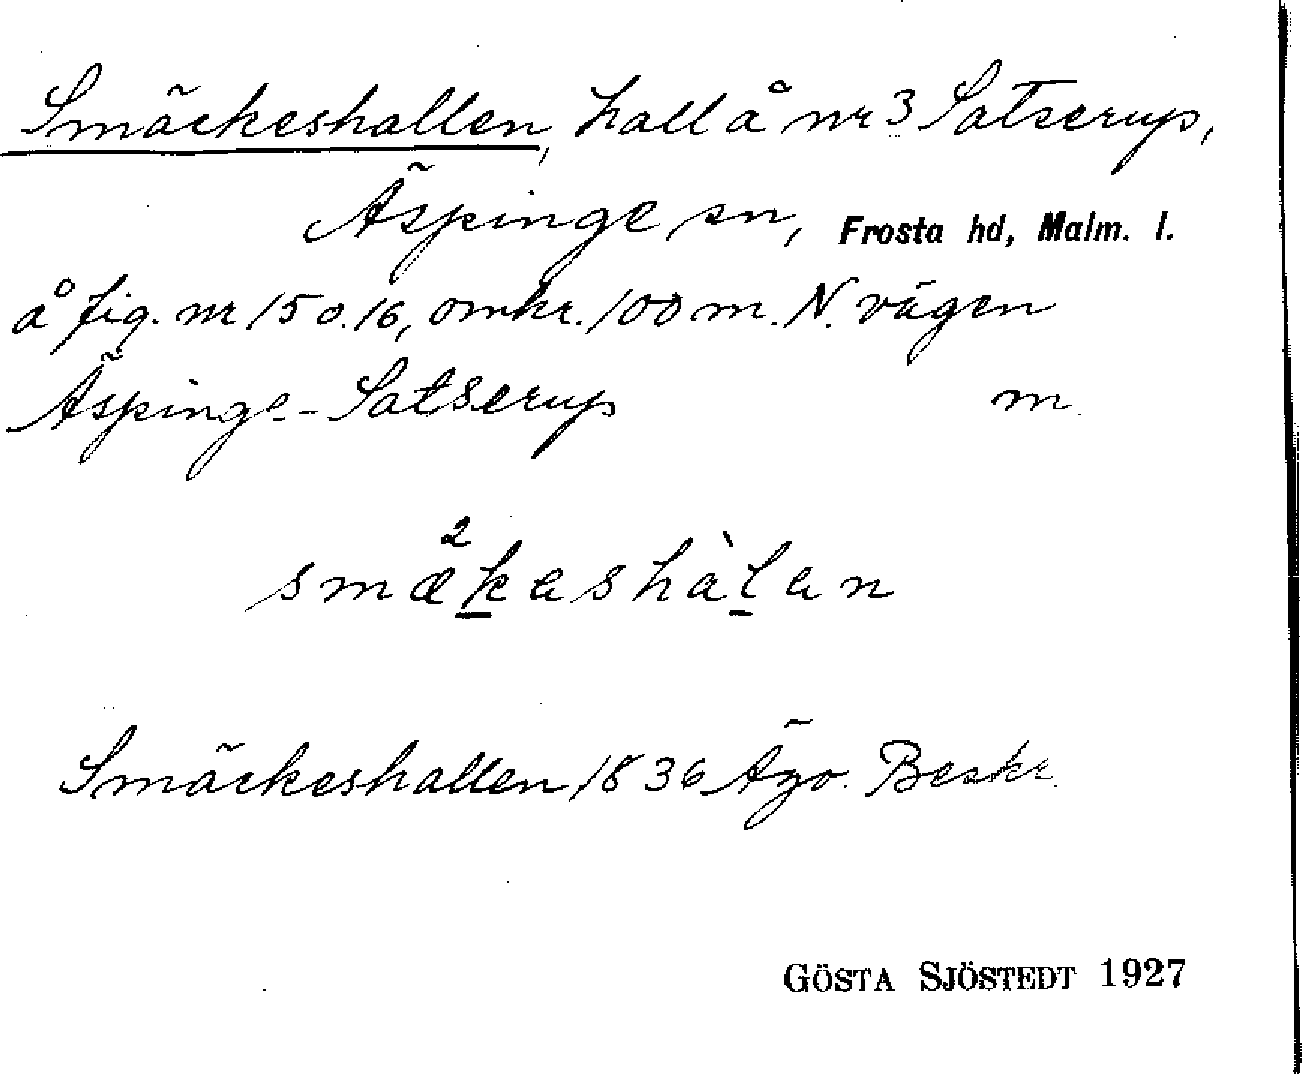 Smäckeshallen, hall å nr 3 Satserup,
Äspinge sn, Frosta hd, Malm. l.
å fig. nr 15 o. 16, omkr. 100 m. N. vägen
Äspinge - Satserup m.
smækeshàlen
Smäckeshallen, 1836 Ägo. Beskr.
GÖSTA SJÖSTEDT 1927